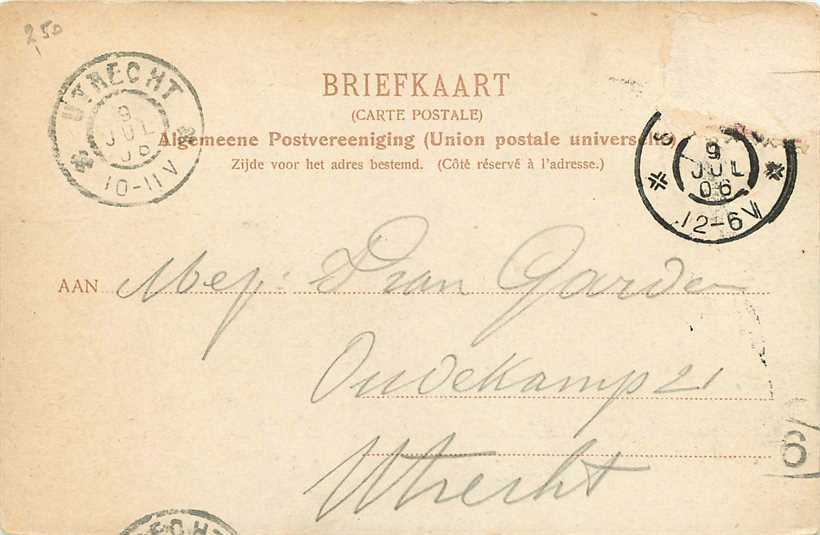 250
UTRECHT
9
JUL
06
10-11V
BRIEFKAART
(CARTE POSTALE)
Algemeene Postvereeniging (Union postale universelle)
Zijde voor het adres bestemd. (Côté réservé à l'adresse.)
9
JUL
06
12-6V
AAN Mej: Dran Garden
Oudekamp 21
Utrecht
6